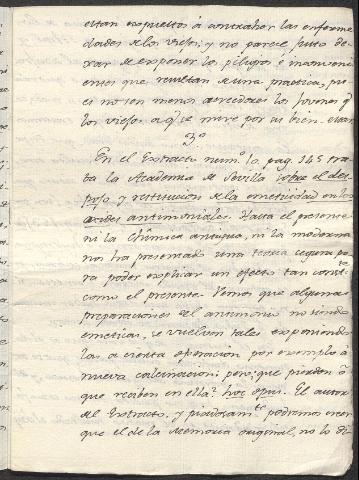 estan expuestos á contraher las enferme
dades de los viejos; y no parece justo de-
xar de exponer los peligros e inconveni
entes que resultan de una practica, pu
es no son menos acrehedores los jovenes q.
los viejos a q. se mire por su bien estar
3.º
En el Extracto num.º 10. pag. 145 tra
ta la Academia de Sevilla sobre el des-
pojo, y restitucion de la emeticidad en los
acidos antimoniales. Hasta el presente
ni la Chîmica antigua, ni la moderna
nos ha presentado una teoria segura pa
ra poder explicar un efecto tan const.te
como el presente. Vemos que algunas
preparaciones del antimonio no siendo
emeticas, se vuelven tales exponiendo
las a cierta operacion por exemplo á
nueva calcinacion; pero, que pierden ó
que reciben en ella? hoc opus. El autor
del Extracto, y piadosam.te podremos creer
que el de la Memoria original, no lo di